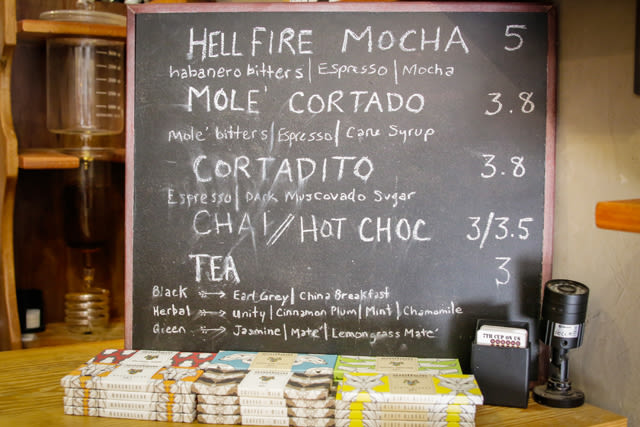 HELLFIRE MOCHA 5
habanero bitters | Espresso | Mocha
MOLE' CORTADO 3.8
Mole' bitters | Espresso | Cane Syrup
CORTADITO 3.8
Espresso | Dark Muscovado Sugar
CHAI // HOT CHOC 3/3.5
TEA 3
Black Earl Grey | China Breakfast
Herbal Unity | Cinnamon Plum | Mint | Chamomile
Green Jasmine | Mate' | Lemongrass Mate'
7TH CUP ON US